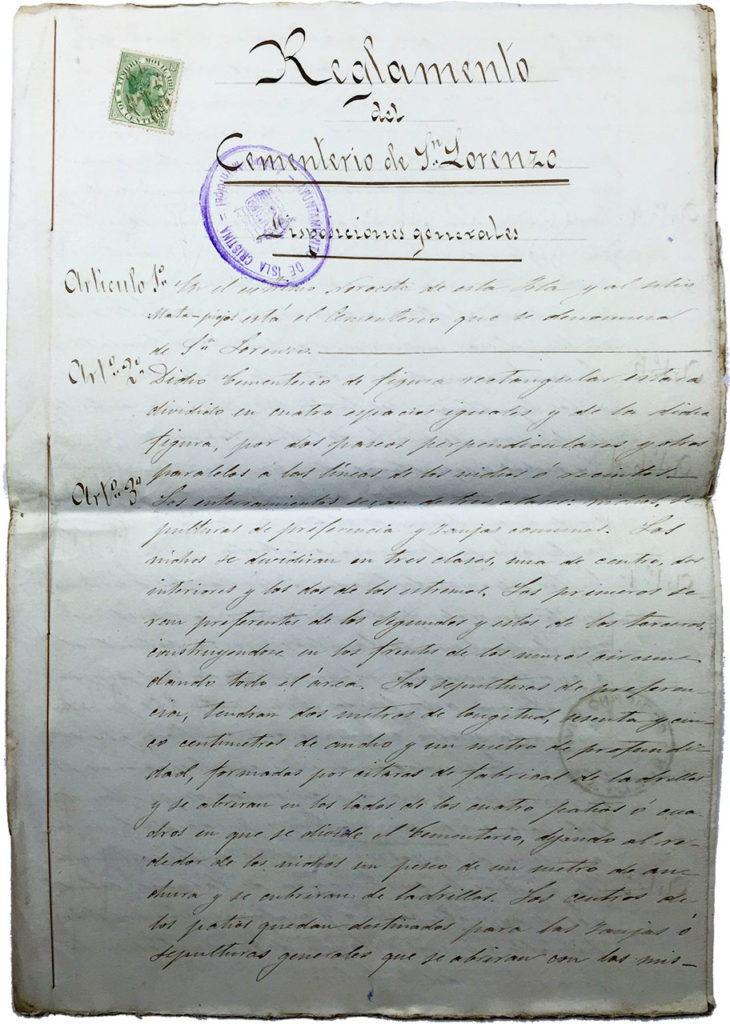 Reglamento
del
Cementerio de Sn. Lorenzo
Disposiciones generales
AYUNTAMIENTO DE ISLA CRISTINA
Articulo 1º. En el estremo Noroeste de esta Isla y al sitio
Mata-piojos está el Cementerio que se denomina
de Sn. Lorenzo.
Artº. 2º Dicho Cementerio de figura rectangular estara
dividido en cuatro espacios iguales y de la dicha
figura, por dos paseos perpendiculares y otros
paralelos á las lineas de los nichos ó recintos.
Artº. 3º Los enterramientos seran de tres clases: nichos, se-
pulturas de preferencia y zanjas comunes. Los
nichos se dividiran en tres clases, una de centro, dos
interiores y los dos de los estremos. Los primeros se-
ran preferentes de los segundos y estos de los terceros,
construyendose en los frentes de los muros circun-
dando todo el área. Las sepulturas de preferen-
cia, tendran dos metros de longitud, sesenta y cin-
co centimetros de ancho y un metro de profundi-
dad, formadas por citaras de fabricas de ladrillos
y se abriran en los lados de los cuatro patios ó cua-
dros en que se divide el Cementerio, dejando al re-
dedor de los nichos un paseo de un metro de an-
chura y se cubriran de ladrillos. Los centros de
los patios quedan destinados para las zanjas ó
sepulturas generales que se abriran con las mis-